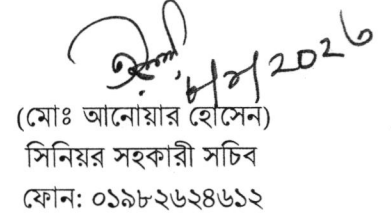 (মোঃ আনোয়ার হোসেন)
সিনিয়র সহকারী সচিব
ফোন: ০১৯৮২৬২৪৬১২